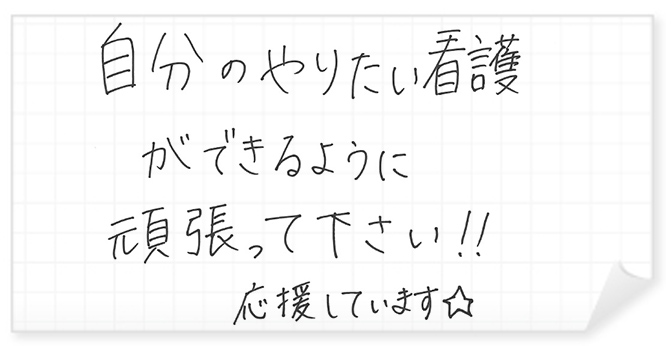 自分のやりたい看護
ができるように
頑張って下さい!!
応援しています☆